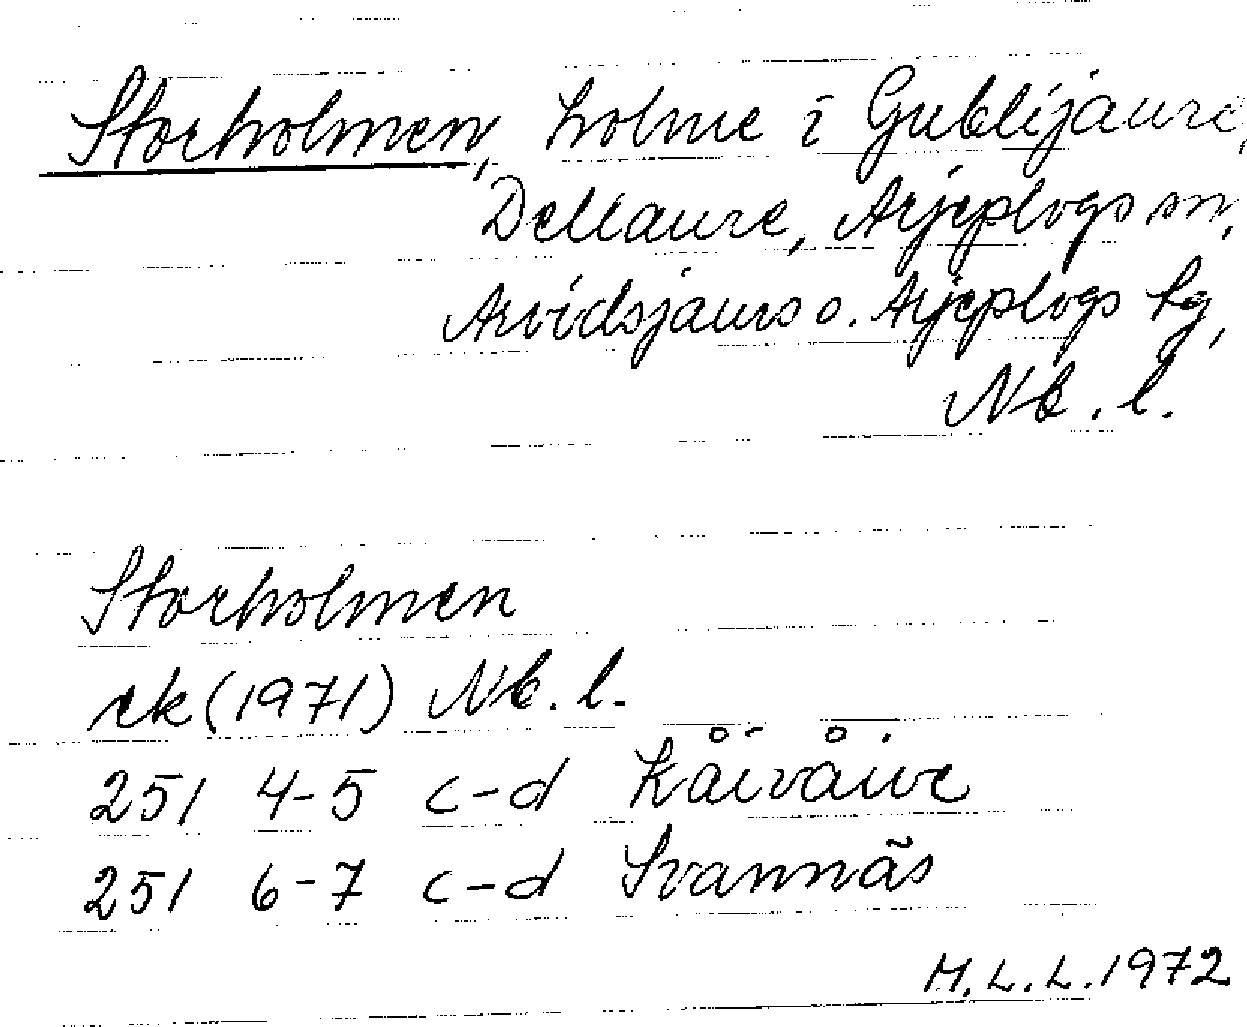 Storholmen, holme i Gublijaure,
Dellaure, Arjeplogs sn,
Arvidsjaurs o. Arjeplogs tg,
Nb. l.
Storholmen
ek (1971) Nb. l.
251 4-5 c-d Kåivåive
251 6-7 c-d Svannäs
M.L.L. 1972